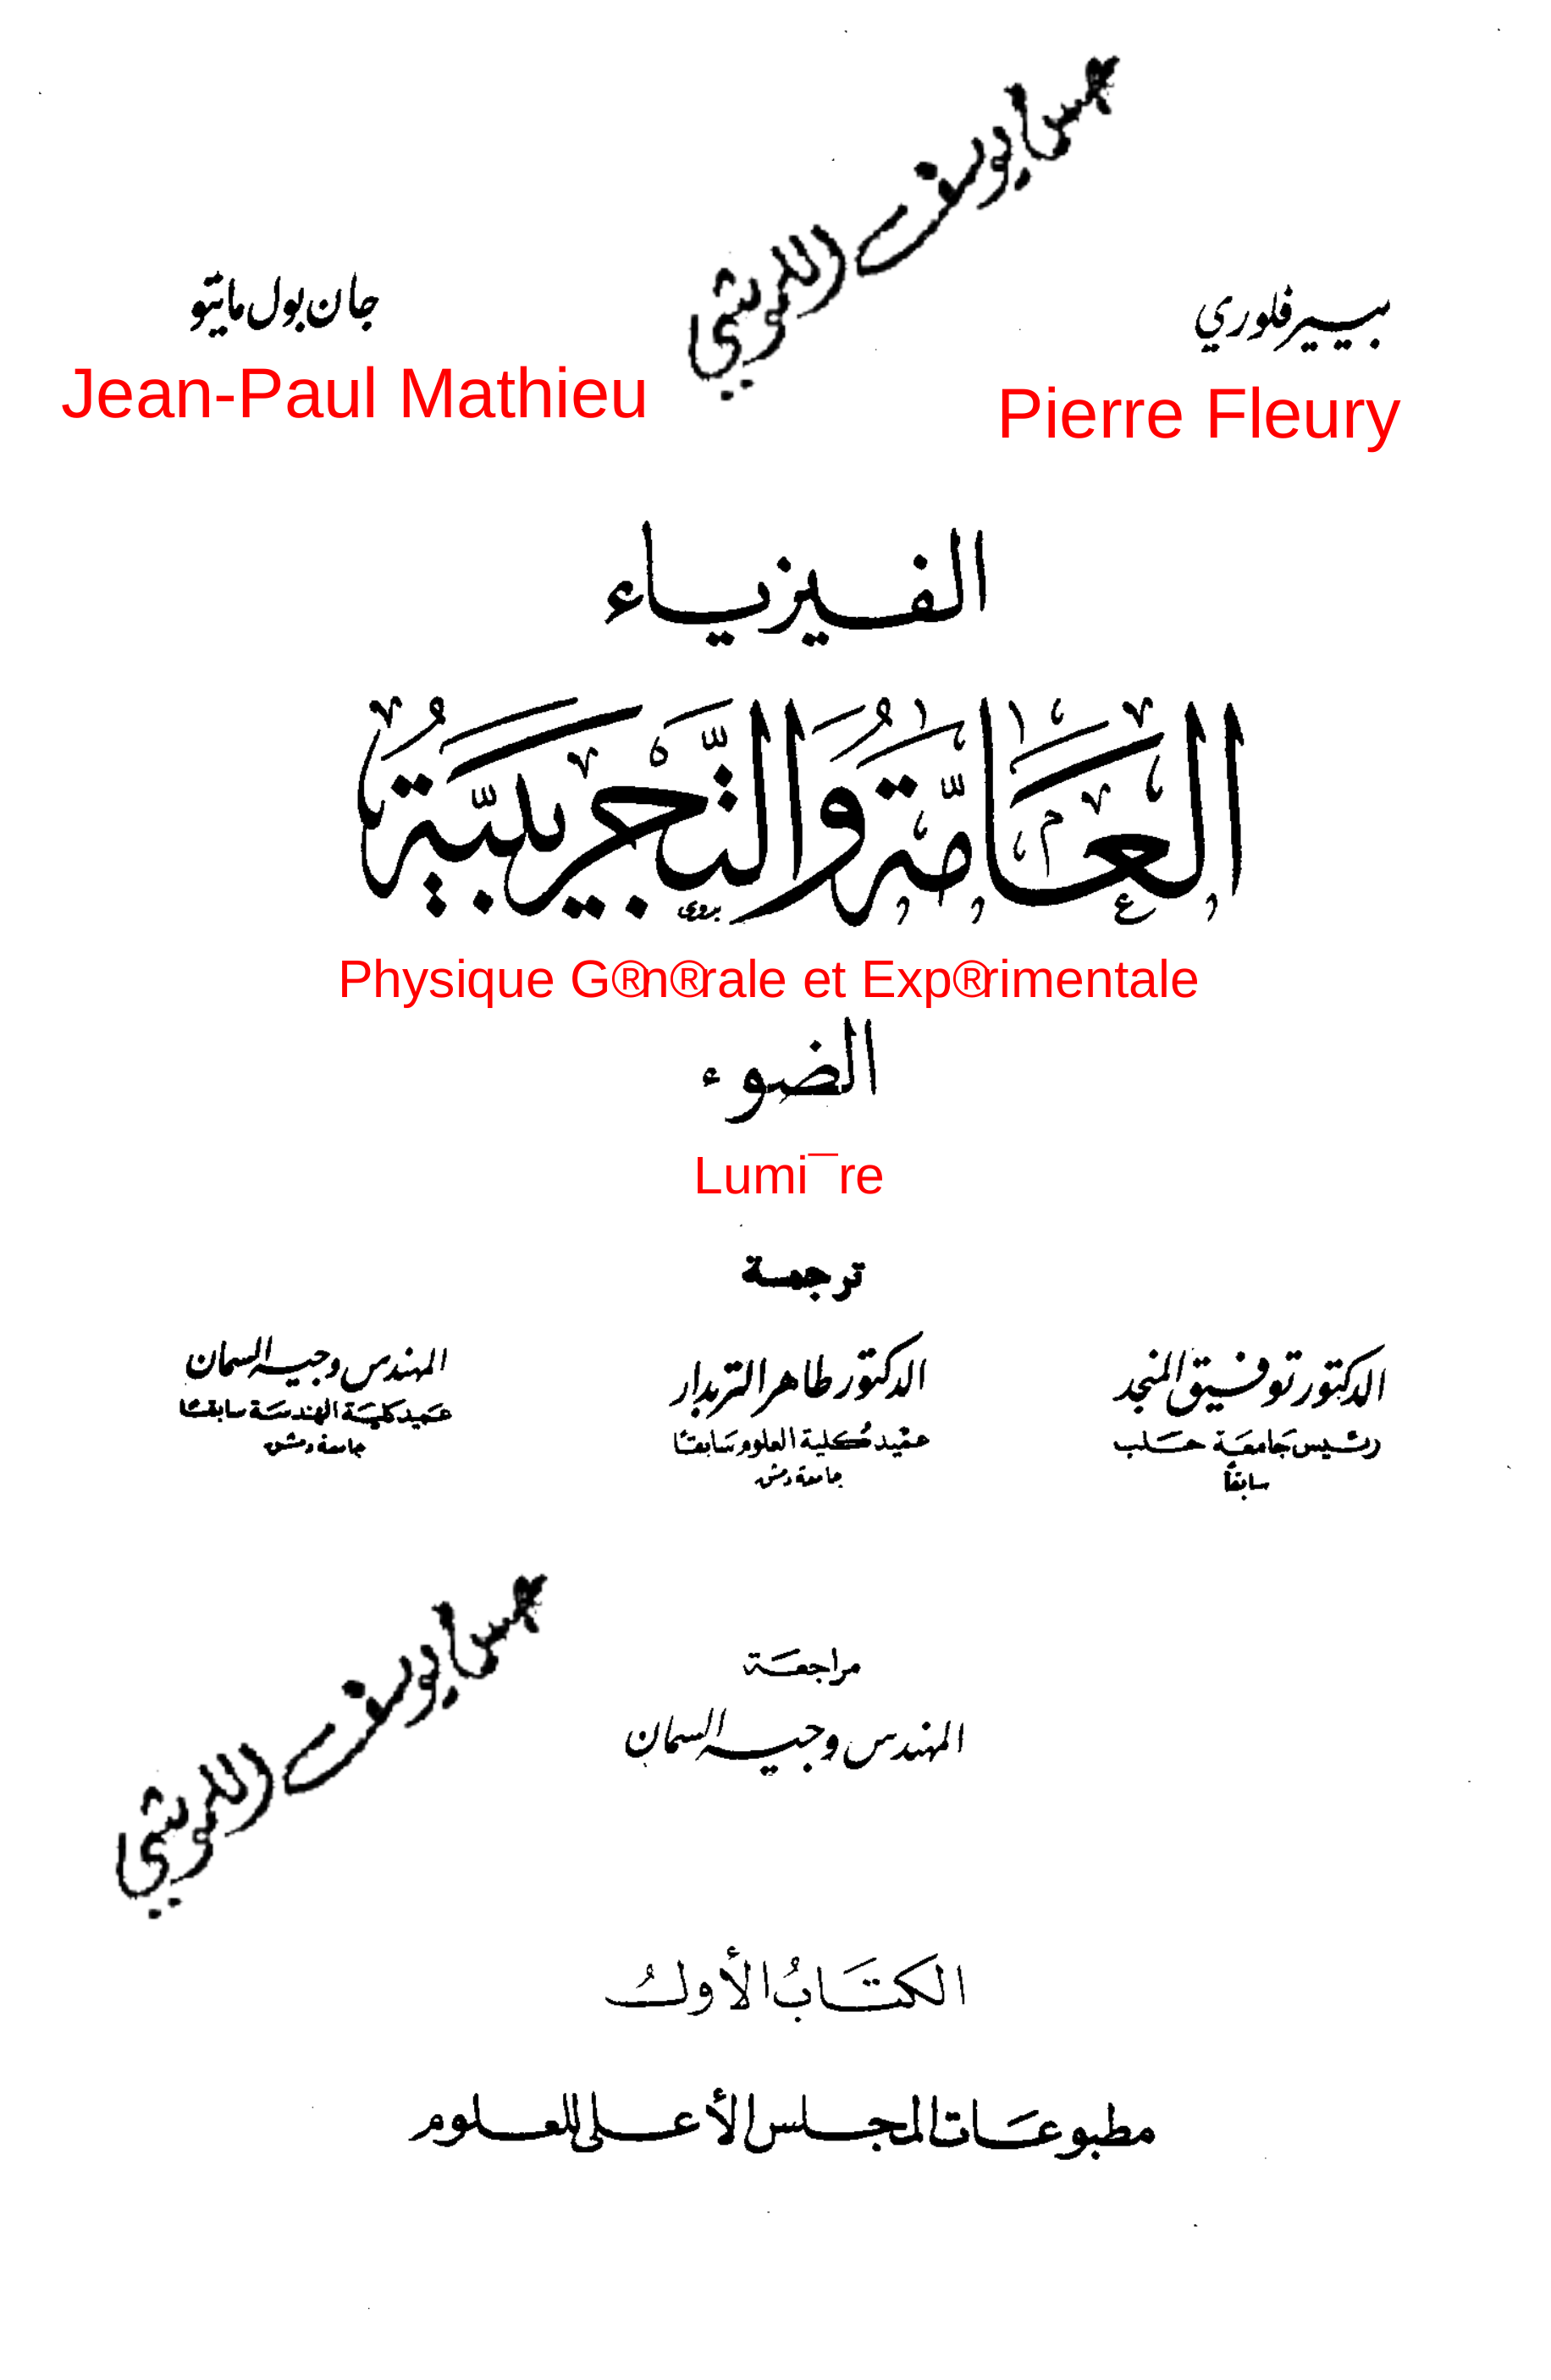 بيير فلوري
جان بول ماتيو
Pierre Fleury
Jean-Paul Mathieu
الفيزياء
العَامَّة وَالتَّجريبيَّةُ
Physique G®n®rale et Exp®rimentale
الضوء
Lumi¯re
ترجمة
الدكتور توفيق المنجد
رئيس جَامعَة حَلب
سابقاً
الدكتور طاهر التربدار
عميد كلية العلوم سَابقًا
جامعة دمشق
المهندس وجيه السمان
عَميد كليَة الهندسَة سابقًا
جامعة دمشق
مراجعَة
المهندس وجيه السمان
الكتَابُ الأولُ
مطبوعَات المجلس الأعلى للعلوم